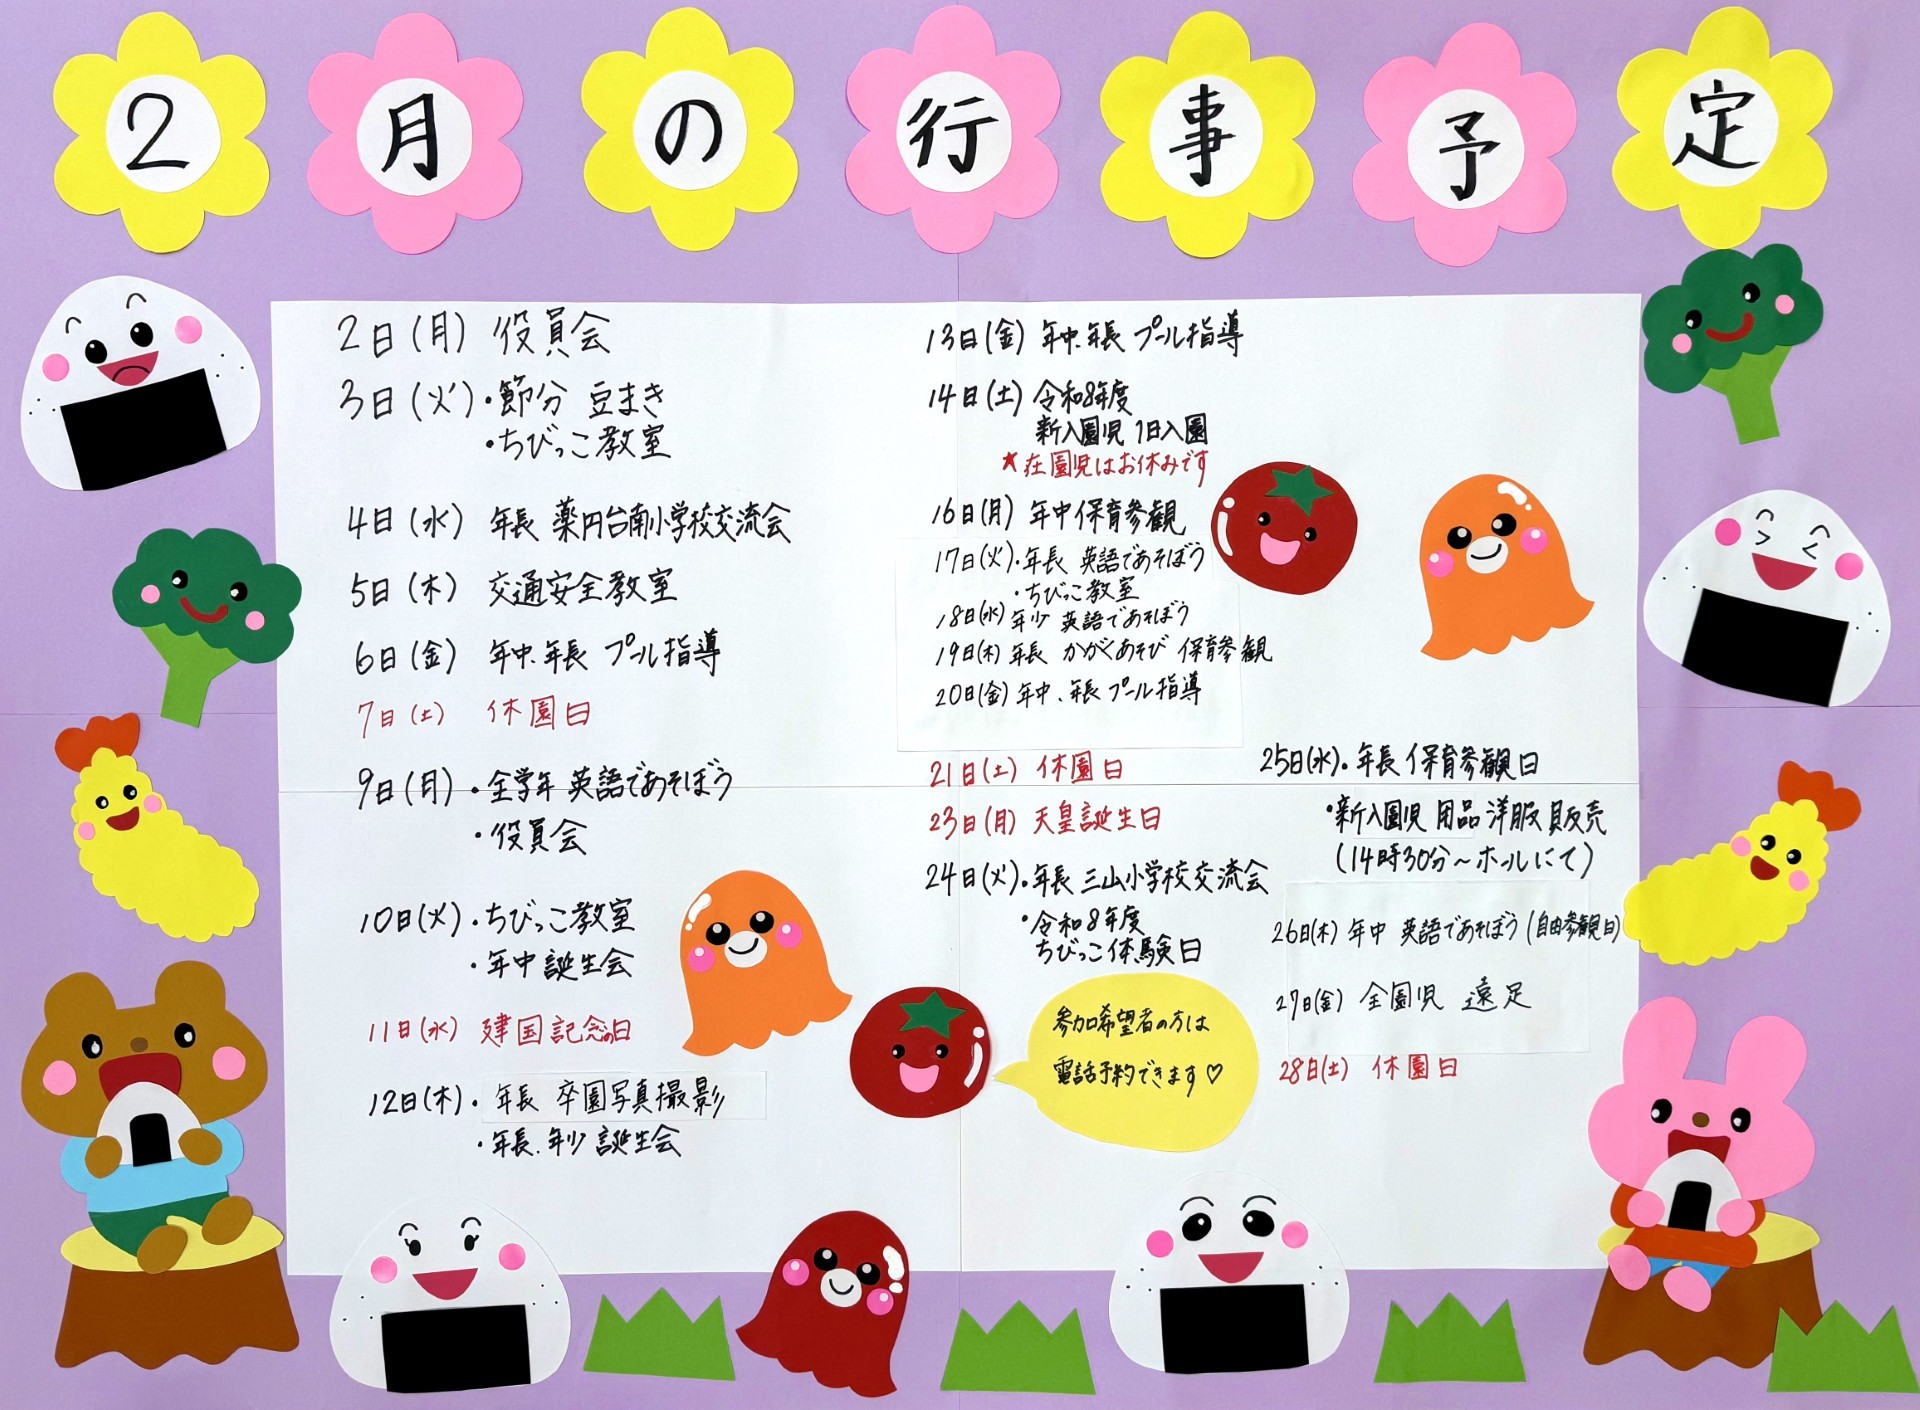 2月の行事予定
2日(月) 役員会
3日(火)・節分 豆まき
・ちびっこ教室
4日(水) 年長 薬円台南小学校交流会
5日(木) 交通安全教室
6日(金) 年中、年長 プール指導
7日(土) 休園日
9日(月)・全学年 英語であそぼう
・役員会
10日(火)・ちびっこ教室
・年中 誕生会
11日(水) 建国記念の日
12日(木)・年長 卒園写真撮影
・年長、年少 誕生会
13日(金) 年中、年長 プール指導
14日(土) 令和8年度
新入園児 1日入園
★在園児はお休みです
16日(月) 年中保育参観
17日(火)・年長 英語であそぼう
・ちびっこ教室
18日(水) 年少 英語であそぼう
19日(木) 年長 かがくあそび 保育参観
20日(金) 年中、年長 プール指導
21日(土) 休園日
23日(月) 天皇誕生日
24日(火)・年長 三山小学校交流会
・令和8年度
ちびっこ体験日
参加希望者の方は
電話予約できます♡
25日(水)・年長 保育参観日
・新入園児 用品 洋服販売
(14時30分～ホールにて)
26日(木) 年中 英語であそぼう(自由参観日)
27日(金) 全園児 遠足
28日(土) 休園日